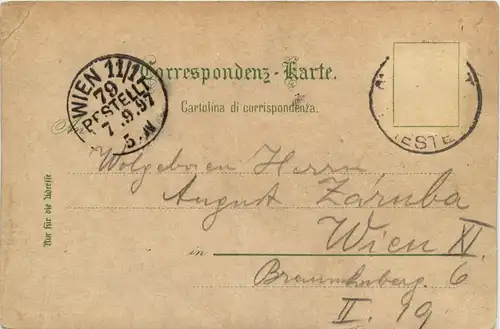 Correspondenz-Karte.
Cartolina di corrispondenza.
WIEN 11/1
79
BESTELLT
7 9.97
5.N
IESTE
An
Wolgeboren Herrn
August Záruba
in Wien XI.
6
II. 19
Nur für die Adresse.